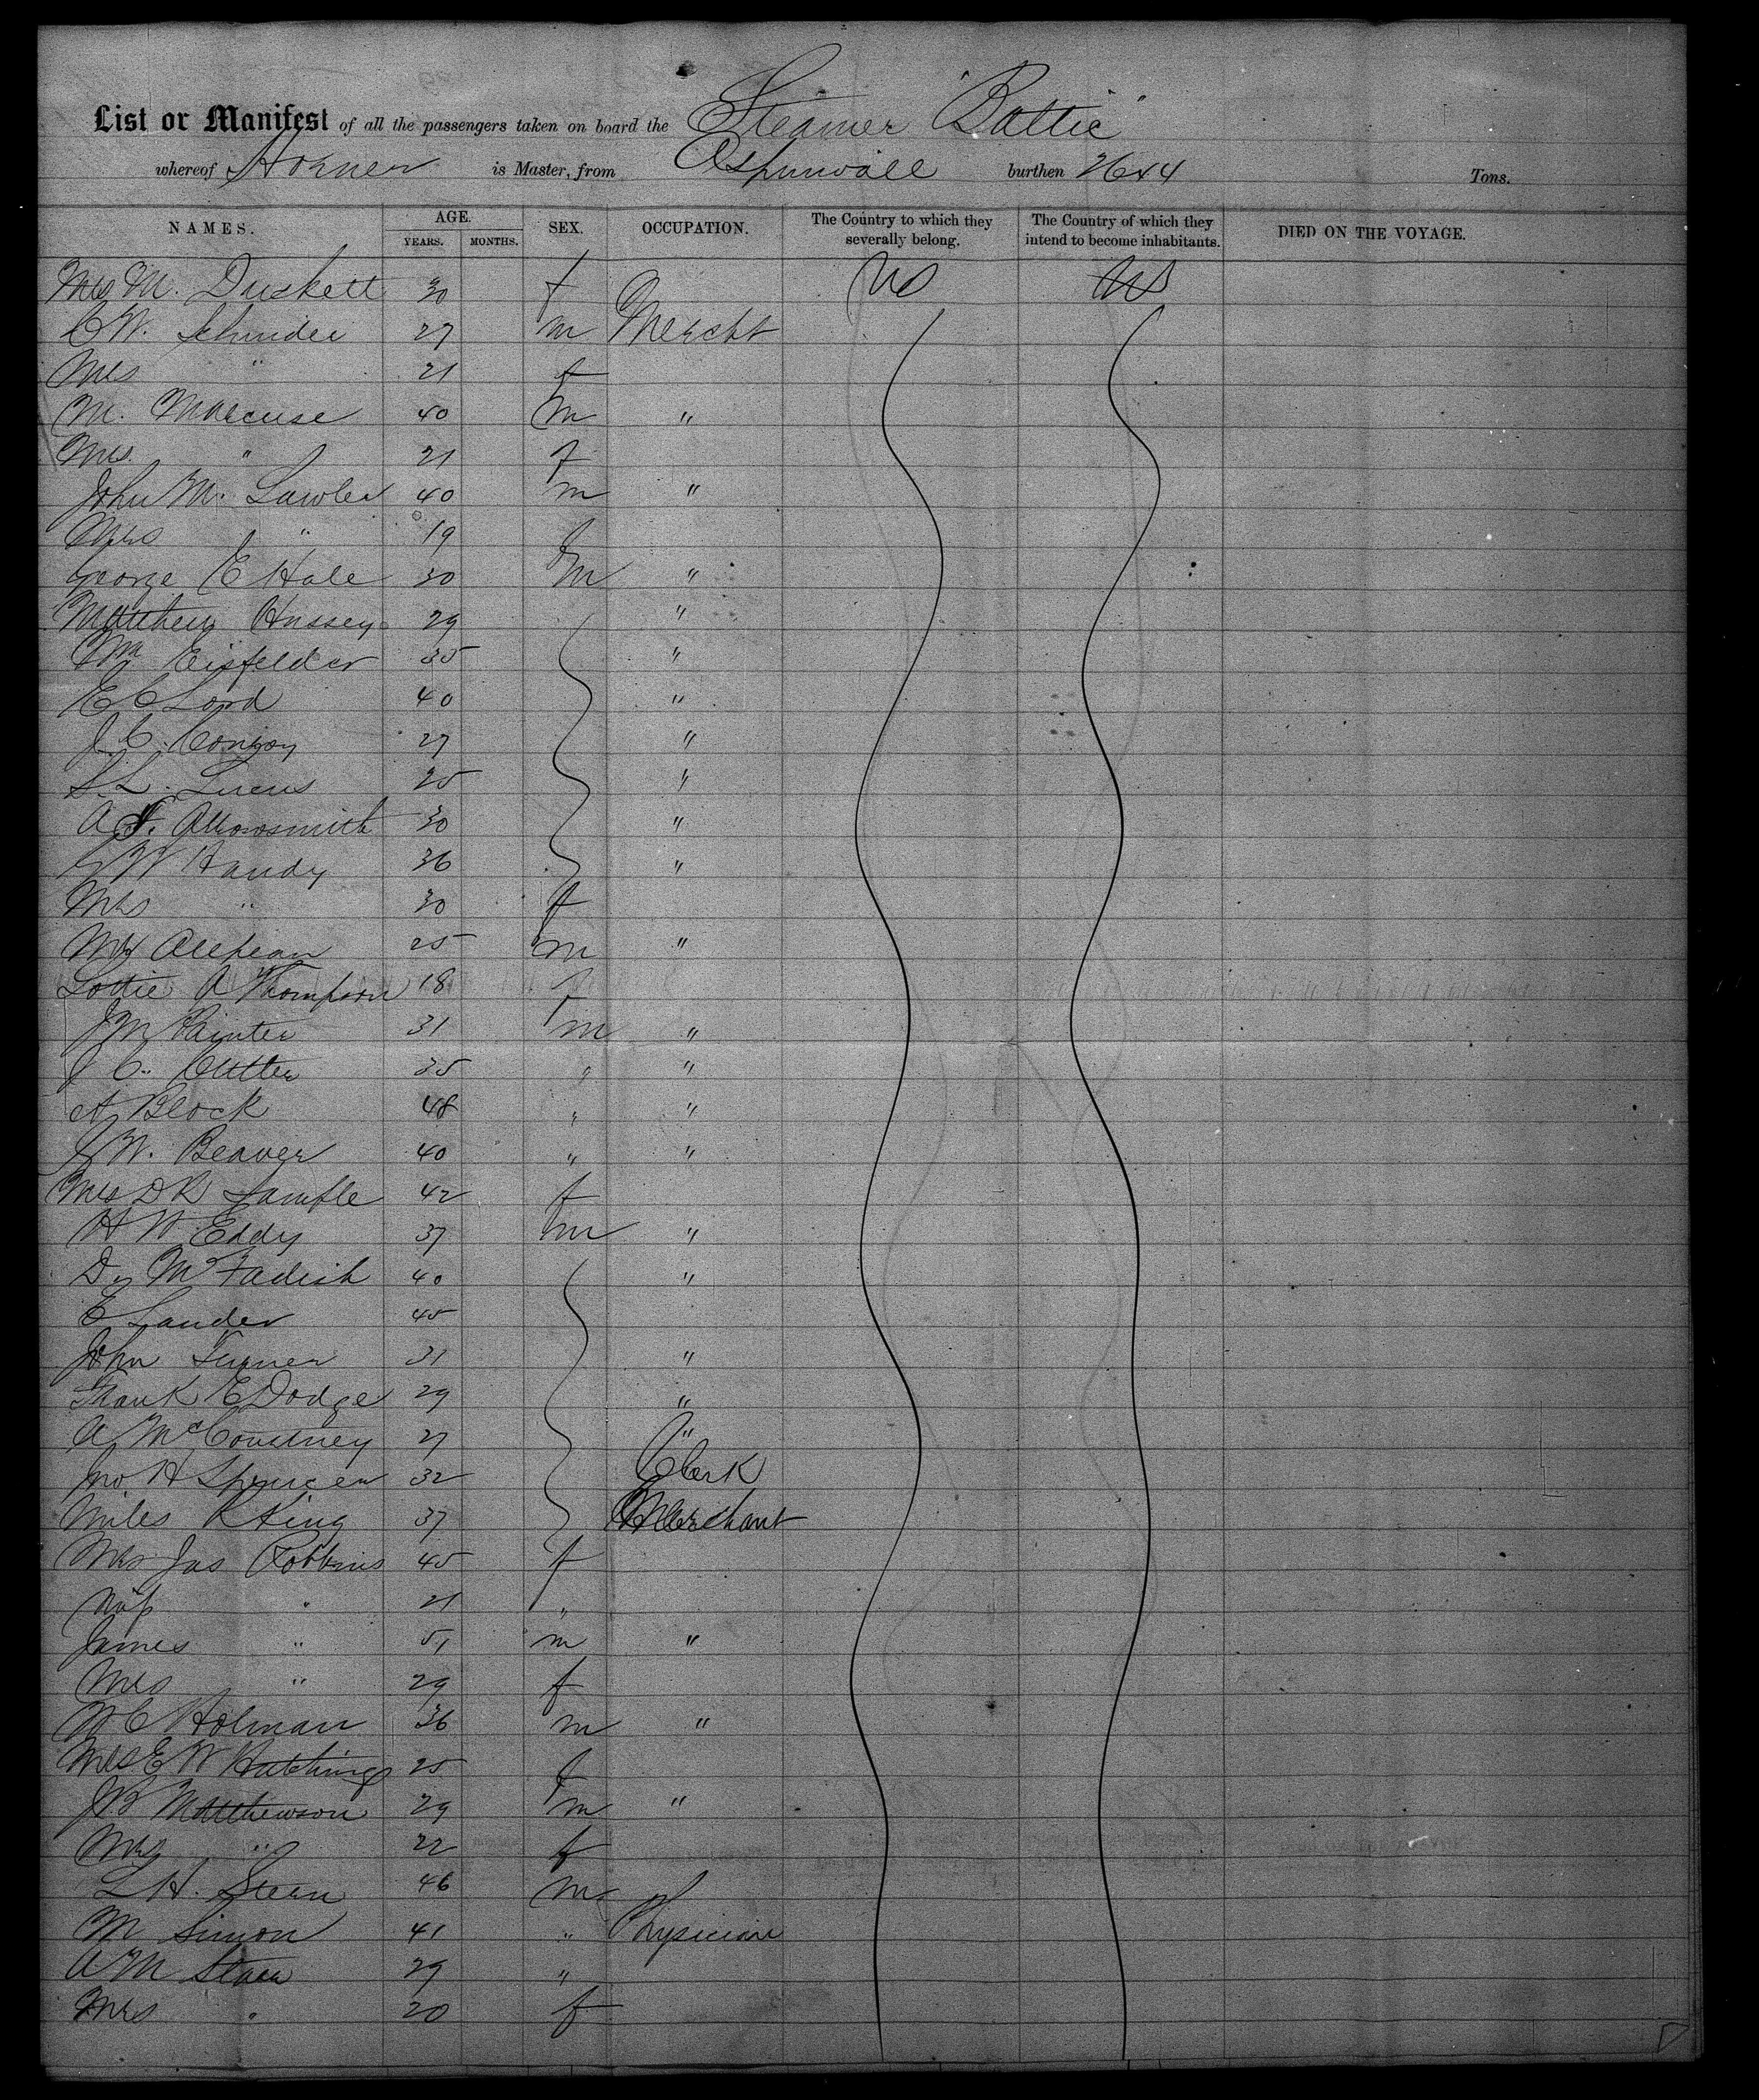 List or Manifest of all the passengers taken on board the Steamer "Baltic"
whereof Horner is Master, from Aspinwall burthen 2644 Tons.
NAMES. AGE. SEX. OCCUPATION. The Country to which they severally belong. The Country of which they intend to become inhabitants. DIED ON THE VOYAGE.
YEARS. MONTHS.
Mrs M. Duskett 30 f US US
C W. Schnider 27 m Mercht
Mrs " 21 f
M. Marcuse 40 m "
Mrs. " 21 f
John M. Lawler 40 m "
Mrs " 19 f
George E Hale 30 m "
Matthew Hussey 29 "
Eisfelder 35 "
E C Lord 40 "
J. C. Conroy 27 "
S. L. Lucus 25 "
A F. Arrowsmith 30 "
G W Handy 36 "
Mrs " 30 f
25 m "
Lottie A Thompson 18 f
J M Painter 31 m "
J C. Cutter 35 " "
A Block 48 " "
G W. Beaver 40 " "
Mrs D R Sample 42 f
H W Eddy 37 m "
D. 40 "
E Lander 45
John Turner 31 "
Frank E Dodge 29 "
A McCourtney 27 "
Jno. H Spencer 32 Clerk
Miles R King 37 Merchant
Mrs Jas Robbins 45 f
Miss " 21 "
James " 51 m "
Mrs " 29 f
W C Holman 36 m "
Mrs E W Hutchings 25 f
J B Matthewson 29 m "
Mrs " 22 f
L H. Stern 46 m
M Simon 41 " Physician
A M Starr 29 "
Mrs " 20 f